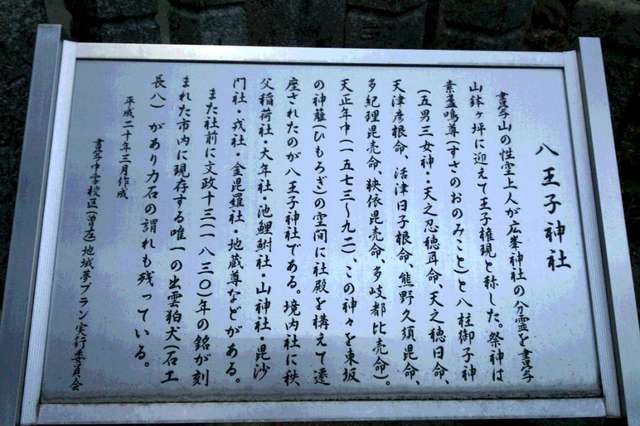 八王子神社
書写山の性空上人が広峯神社の分霊を書写
山鉢ヶ坪に迎えて王子権現と称した。祭神は
素盞鳴尊(すさのおのみこと)と八柱御子神
(五男三女神··天之忍穂耳命、天之穂日命、
天津彦根命、活津日子根命、熊野久須毘命、
多紀理毘売命、狭依毘売命、多岐都比売命)。
天正年中(一五七三〜九二)、この神々を東坂
の神籬(ひもろぎ)の空間に社殿を構えて遷
座されたのが八王子神社である。境内社に秩
父稲荷社·大年社·池鯉鮒社·山神社·毘沙
門社·戎社·金毘羅社·地蔵尊などがある。
また社前に文政十三(一八三〇)年の銘が刻
まれた市内に現存する唯一の出雲狛犬(石工
長八)があり力石の謂れも残っている。
平成二十年三月作成
書写中学校区(曽左)地域夢プラン実行委員会